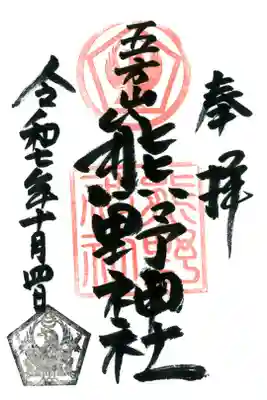 奉拝
五方山熊野神社
熊野神社
令和七年十月四日